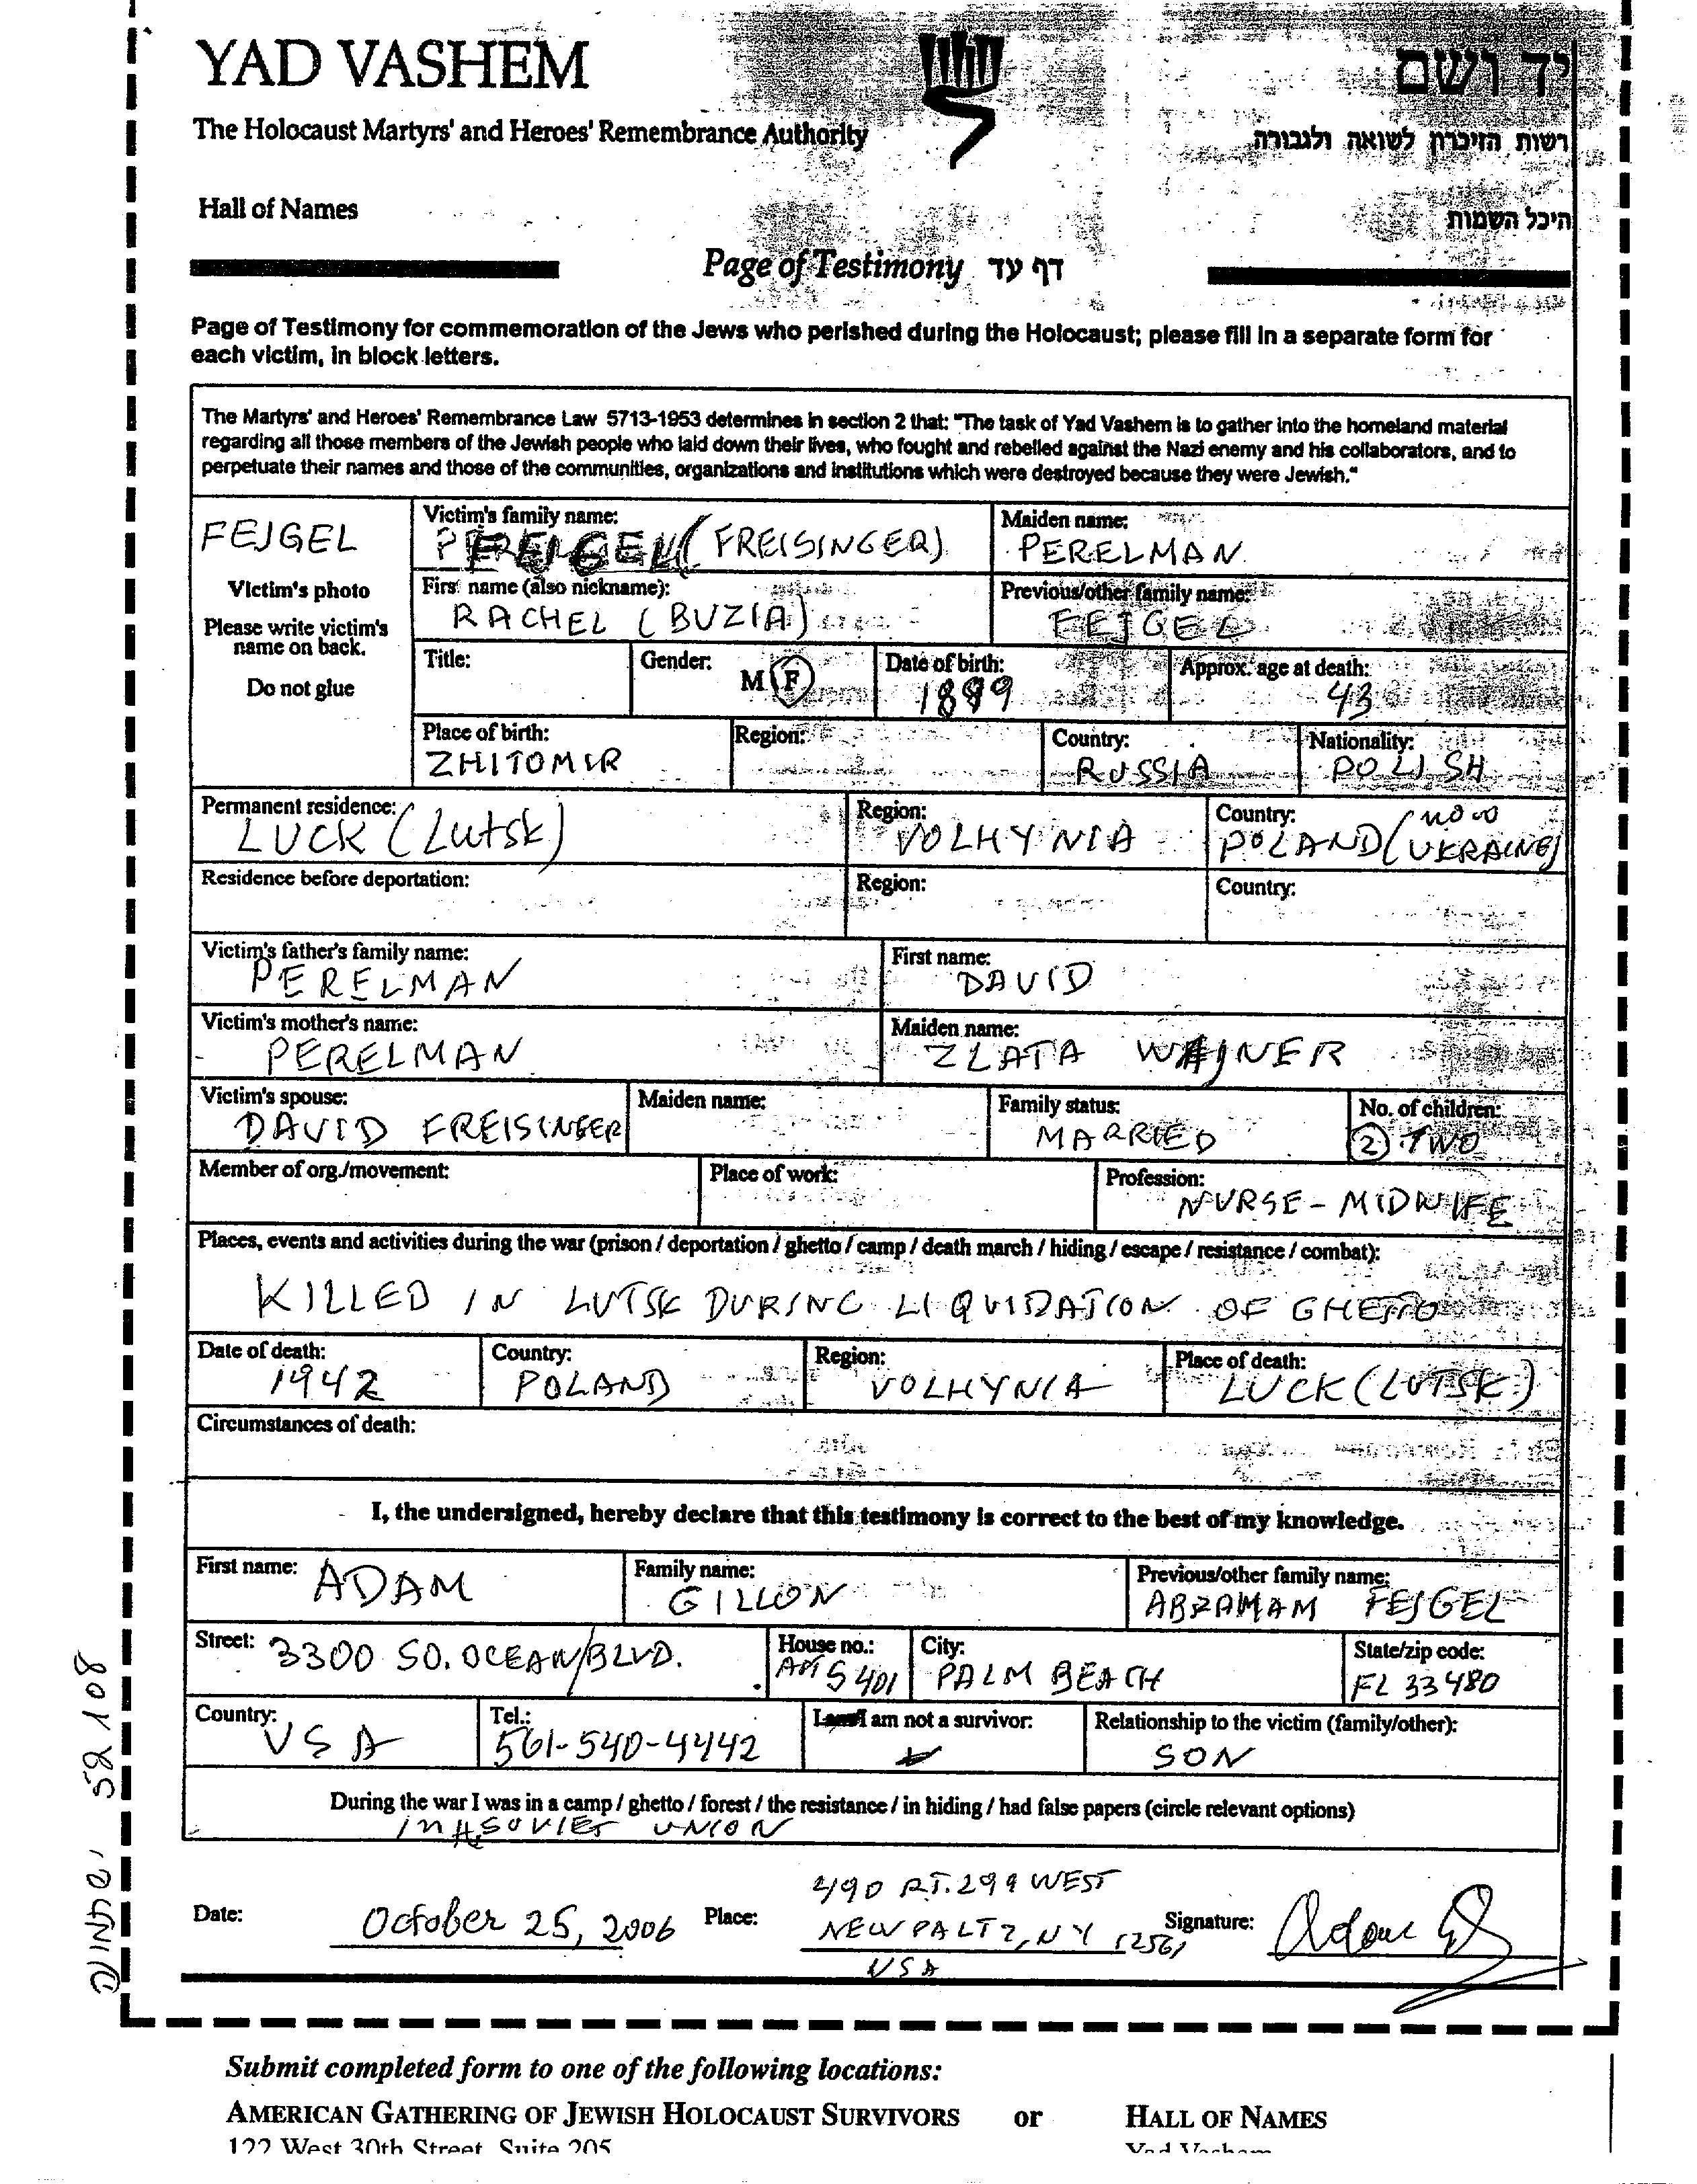 YAD VASHEM
יד ושם
The Holocaust Martyrs' and Heroes' Remembrance Authority
רשות הזיכרון לשואה ולגבורה
Hall of Names
היכל השמות
Page of Testimony דף עד
Page of Testimony for commemoration of the Jews who perished during the Holocaust; please fill in a separate form for
each victim, in block letters.
The Martyrs' and Heroes' Remembrance Law 5713-1953 determines in section 2 that: "The task of Yad Vashem is to gather into the homeland material
regarding all those members of the Jewish people who laid down their lives, who fought and rebelled against the Nazi enemy and his collaborators, and to
perpetuate their names and those of the communities, organizations and institutions which were destroyed because they were Jewish."
FEJGEL
Victim's photo
Please write victim's
name on back.
Do not glue
Victim's family name: Maiden name:
(FREISINGER) PERELMAN
First name (also nickname): Previous/other family name:
RACHEL (BUZIA) FEJGEL
Title: Gender: M F Date of birth: Approx. age at death:
1899 43
Place of birth: Region: Country: Nationality:
ZHITOMIR RUSSIA POLISH
Permanent residence: Region: Country:
LUCK (Lutsk) VOLHYNIA POLAND (now UKRAINE)
Residence before deportation: Region: Country:
Victim's father's family name: First name:
PERELMAN DAVID
Victim's mother's name: Maiden name:
PERELMAN ZLATA WAJNER
Victim's spouse: Maiden name: Family status: No. of children:
DAVID FREISINGER MARRIED 2 TWO
Member of org./movement: Place of work: Profession:
NURSE - MIDWIFE
Places, events and activities during the war (prison / deportation / ghetto / camp / death march / hiding / escape / resistance / combat):
KILLED IN LUTSK DURING LIQUIDATION OF GHETTO
Date of death: Country: Region: Place of death:
1942 POLAND VOLHYNIA LUCK (LUTSK)
Circumstances of death:
I, the undersigned, hereby declare that this testimony is correct to the best of my knowledge.
First name: Family name: Previous/other family name:
ADAM GILLON ABRAHAM FEJGEL
Street: House no.: City: State/zip code:
3300 SO. OCEAN BLVD. APT S 401 PALM BEACH FL 33480
Country: Tel.: I am not a survivor: Relationship to the victim (family/other):
USA 561-540-4442 SON
During the war I was in a camp / ghetto / forest / the resistance / in hiding / had false papers (circle relevant options)
SOVIET UNION
Date: October 25, 2006 Place: 490 RT. 299 WEST
NEW PALTZ, NY 12561
USA
Signature: Adam
52108
Submit completed form to one of the following locations:
AMERICAN GATHERING OF JEWISH HOLOCAUST SURVIVORS or HALL OF NAMES
122 West 30th Street, Suite 205 Yad Vashem